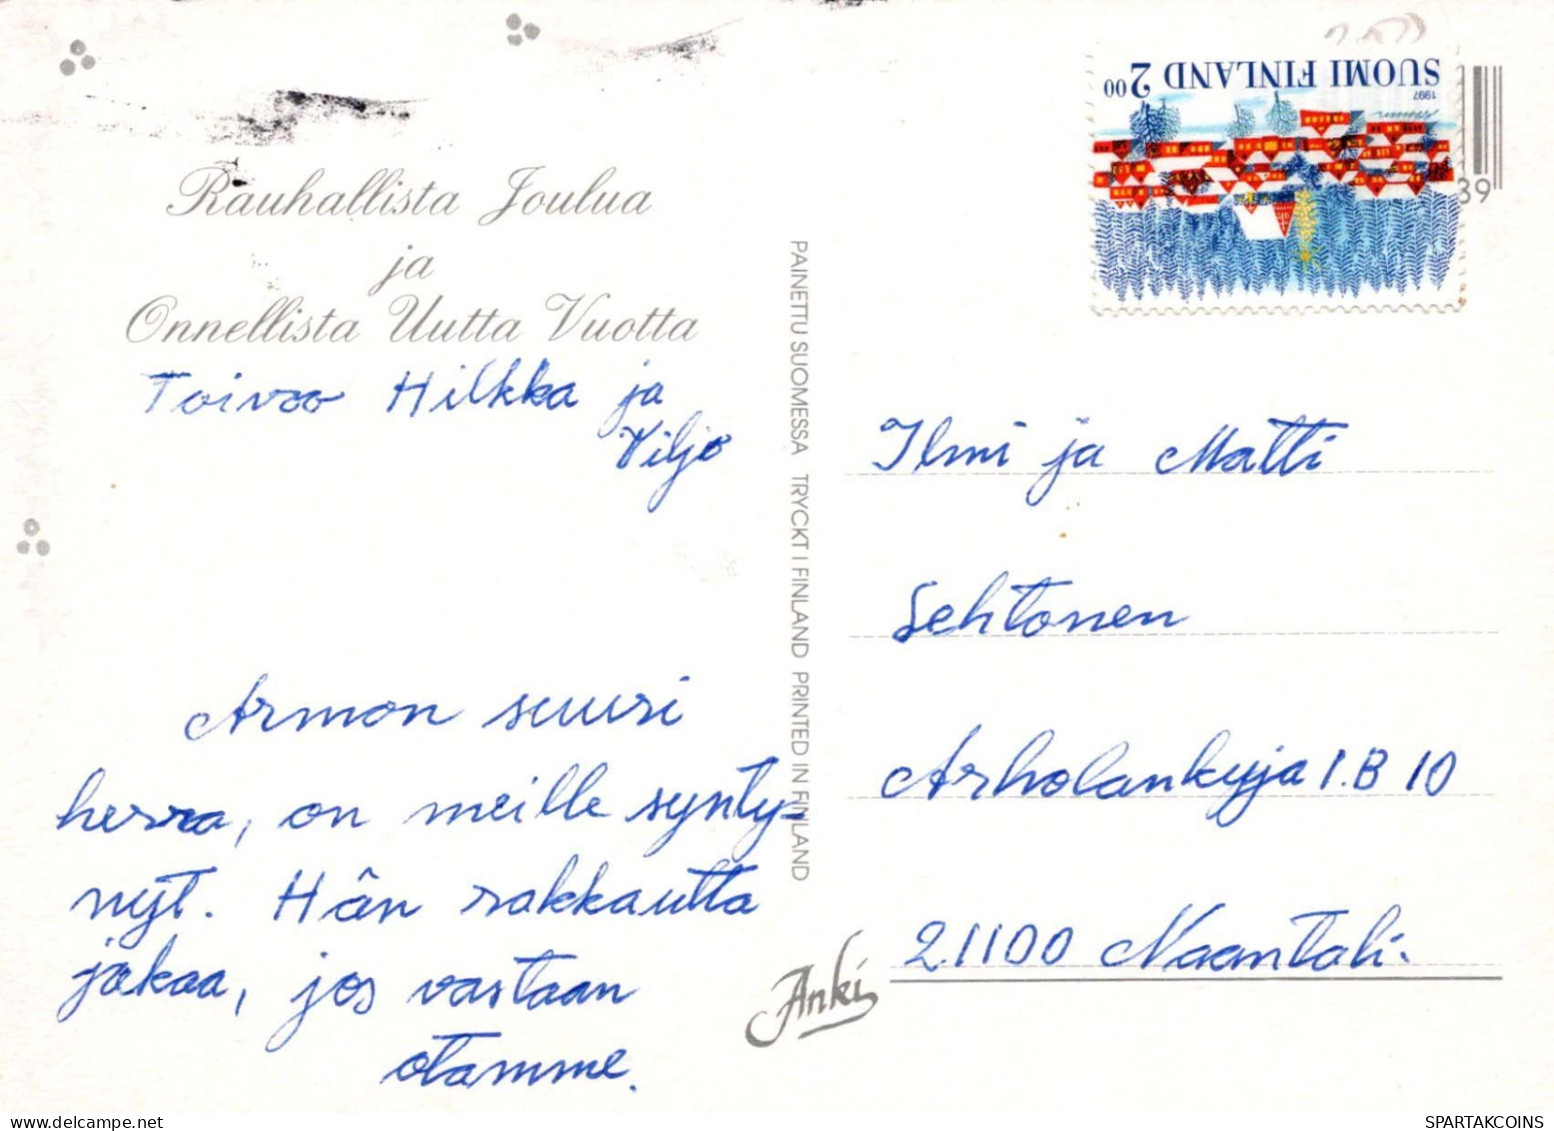 Rauhallista Joulua
ja
Onnellista Uutta Vuotta
Toivoo Hilkka ja
Viljo
Armon suuri
herra, on meille synty-
nyt. Hän rakkautta
jakaa, jos vastaan
otamme.
PAINETTU SUOMESSA TRYCKT I FINLAND PRINTED IN FINLAND
Anki
SUOMI FINLAND 2.00
1997
39
Ilmi ja Matti
Lehtonen
Arholankuja 1.B 10
21100 Naantali.
SPARTAKCOINS